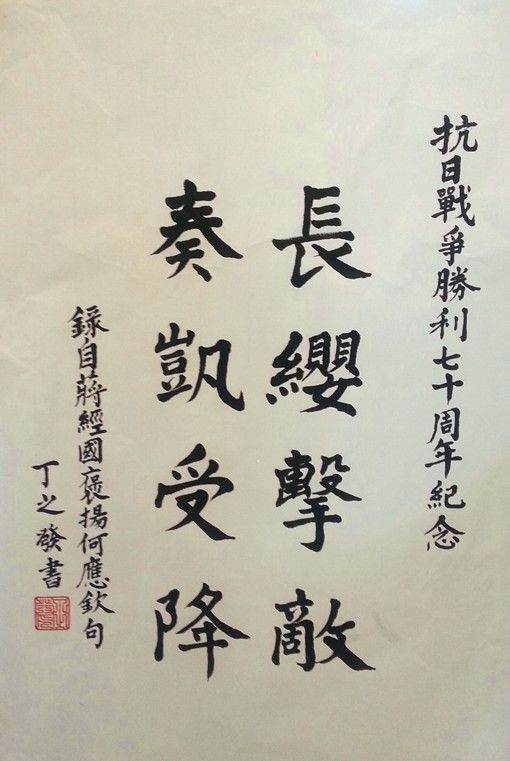 抗日戰爭勝利七十周年紀念
長纓擊敵
奏凱受降
錄自蔣經國褒揚何應欽句
丁之發書